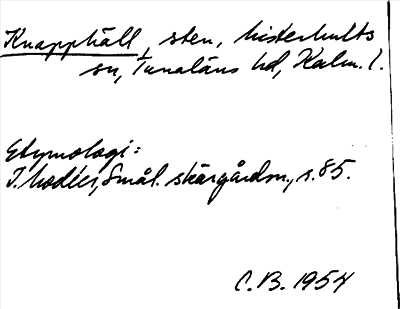 Knapphäll, sten, Misterhults
sn, Tunaläns hd, Kalm. l.
Etymologi:
I. Modéer, Smål. skärgårdsn., s. 85.
C.B. 1954